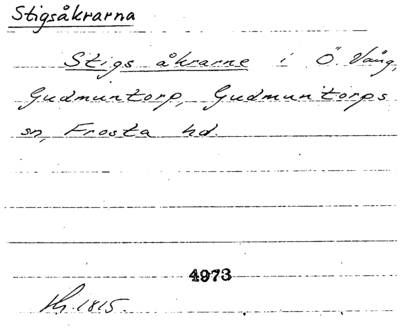 Stigsåkrarna
Stigs åkrarne i Ö. Vång,
Gudmuntorp, Gudmuntorps
sn, Frosta hd.
4973
1815.